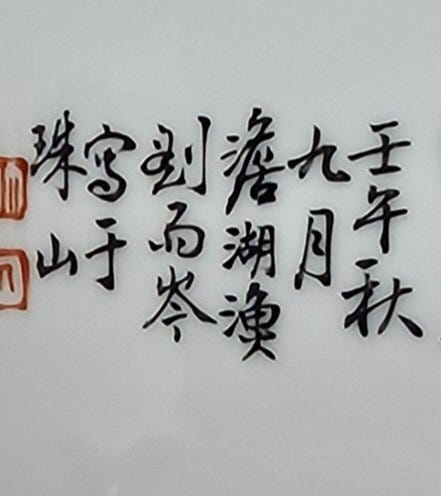 壬午秋
九月
澹湖漁
刘雨岑
寫于
珠山